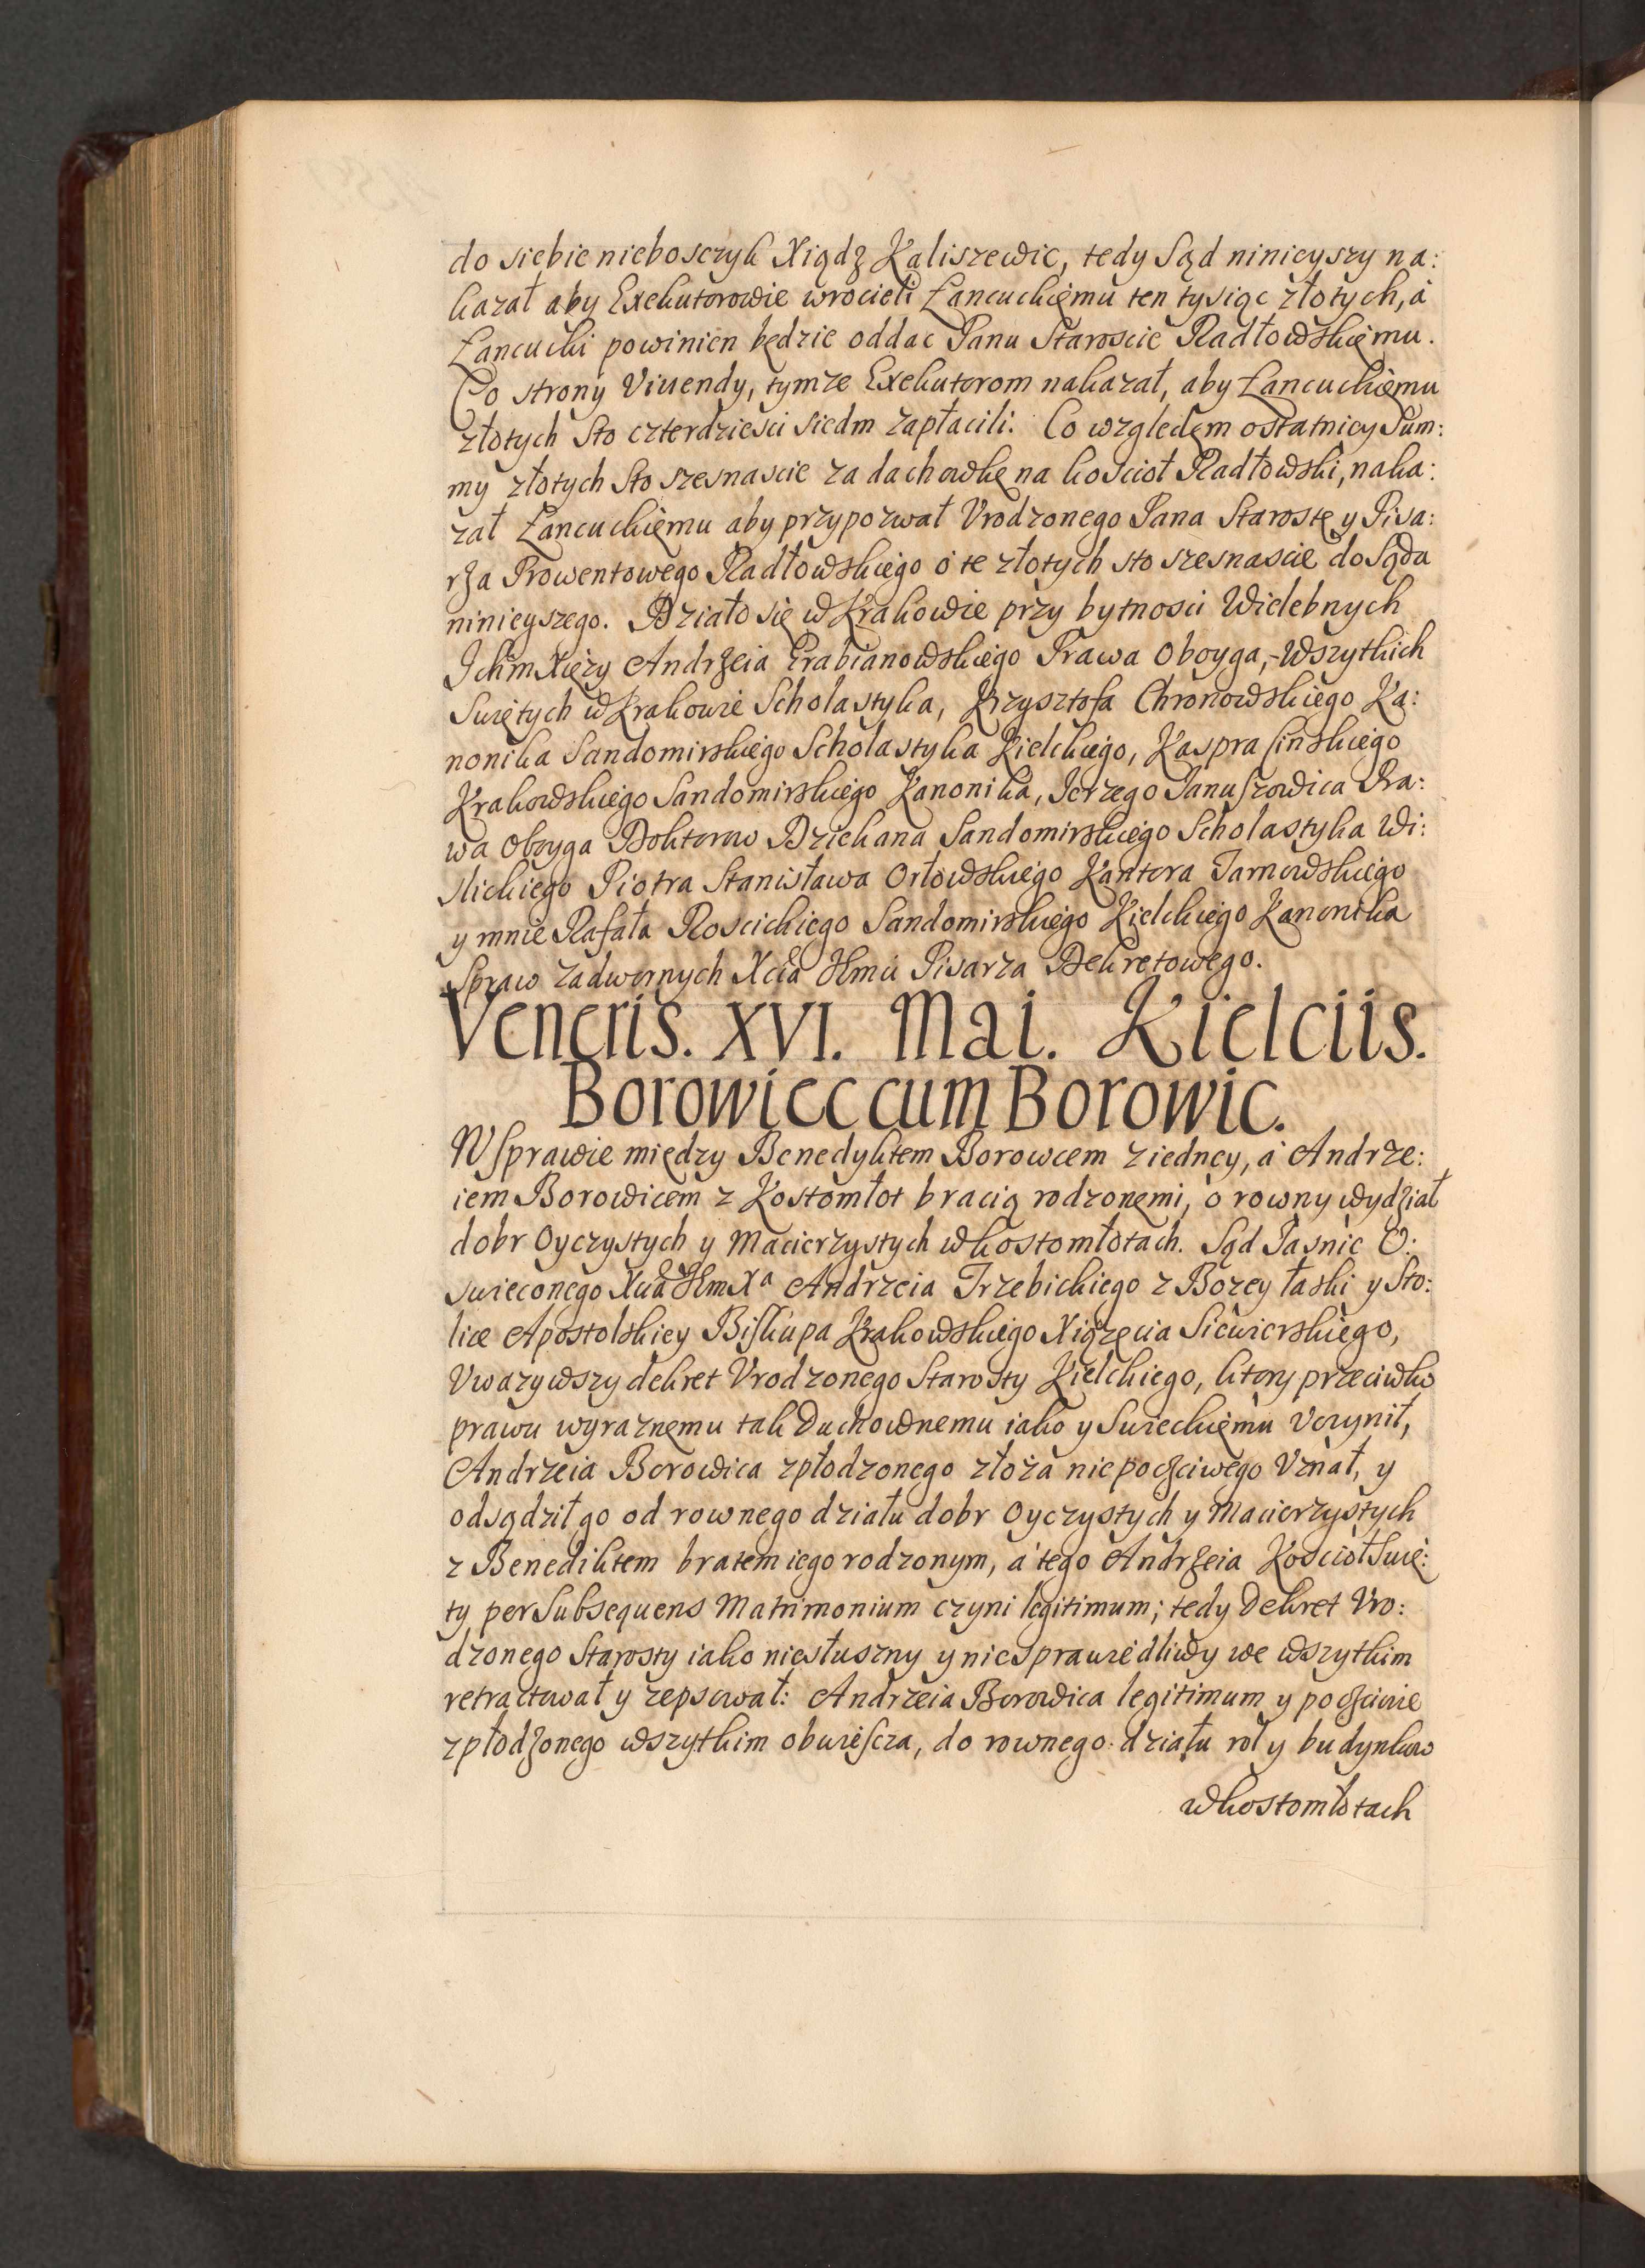 do siebie nieboszczyk Xiądz Kaliszewic, tedy Sąd ninieyszy na:
kazał aby Exekutorowie wrocieli Łancuckiemu ten tysiąc złotych, á
Łancucki powinien będzie oddac Panu Staroscie Radłowskiemu.
Co strony Viuendy, tymze Exekutorom nakazał, aby Łancuckiemu
złotych sto czterdziesci siedm zapłacili. Co względem ostatniey Sum:
my złotych sto szesnascie za dachowkę na kosciot Radłowski, naka:
zał Łancuckiemu aby przypozwał Vrodzonego Pana Starostę y Pisa:
rza Prowentowego Radłowskiego o te złotych sto szesnascie do Sądu
ninieyszego. Działo się w Krakowie przy bytnosci Wielebnych
Ichm Xięzy Andrzeia Grabianowskiego Prawa Oboyga, Wszytkich
Swiętych w Krakowie Scholastyka, Krzysztofa Chronowskiego Ka:
nonika Sandomirskiego Scholastyka Kielckiego, Kaspra Cinskiego
Krakowskiego Sandomirskiego Kanonika, Jerzego Januszowica Pra:
wa Oboyga Doktorow Dziekana Sandomirskiego Scholastyka Wi:
slickiego Piotra Stanisława Orłowskiego Kantora Tarnowskiego
y mnie Rafała Roscickiego Sandomirskiego Kielckiego Kanonika
Spraw zadwornych Xcia Jmci Pisarza Dekretowego.
Veneris. XVI. Mai. Kielciis.
Borowiec cum Borowic.
W Sprawie między Benedyktem Borowcem z iedney, á Andrze:
iem Borowicem z Kostomłot bracią rodzonemi, o rowny wydział
dobr Oyczystych y Macierzystych w kostomłotach. Sąd Jasnie O:
swieconego Xcia Jm Xa Andrzeia Trzebickiego z Bozey łaski y Sto:
lice Apostolskiey Biskupa Krakowskiego Xiązęcia Siewierskiego,
Vwazywszy dekret Vrodzonego Starosty Kielckiego, ktory przeciwko
prawu wyraznemu tak Duchownemu iako y Swieckiemu Vczynił,
Andrzeia Borowica zpłodzonego złoża niepoczciwego Vznał, y
odsądził go od rownego działu dobr Oyczystych y Macierzystych
z Benediktem bratem iego rodzonym, á tego Andrzeia Kosciół Swię:
ty per Subsequens Matrimonium czyni legitimum; tedy Dekret Vro:
dzonego Starosty iako niesłuszny y niesprawiedliwy we wszytkim
retractował y zepsował: Andrzeia Borowica legitimum y poczciwie
zpłodzonego wszytkim obwiescza, do rownego działu rol y budynkow
w kostomłotach